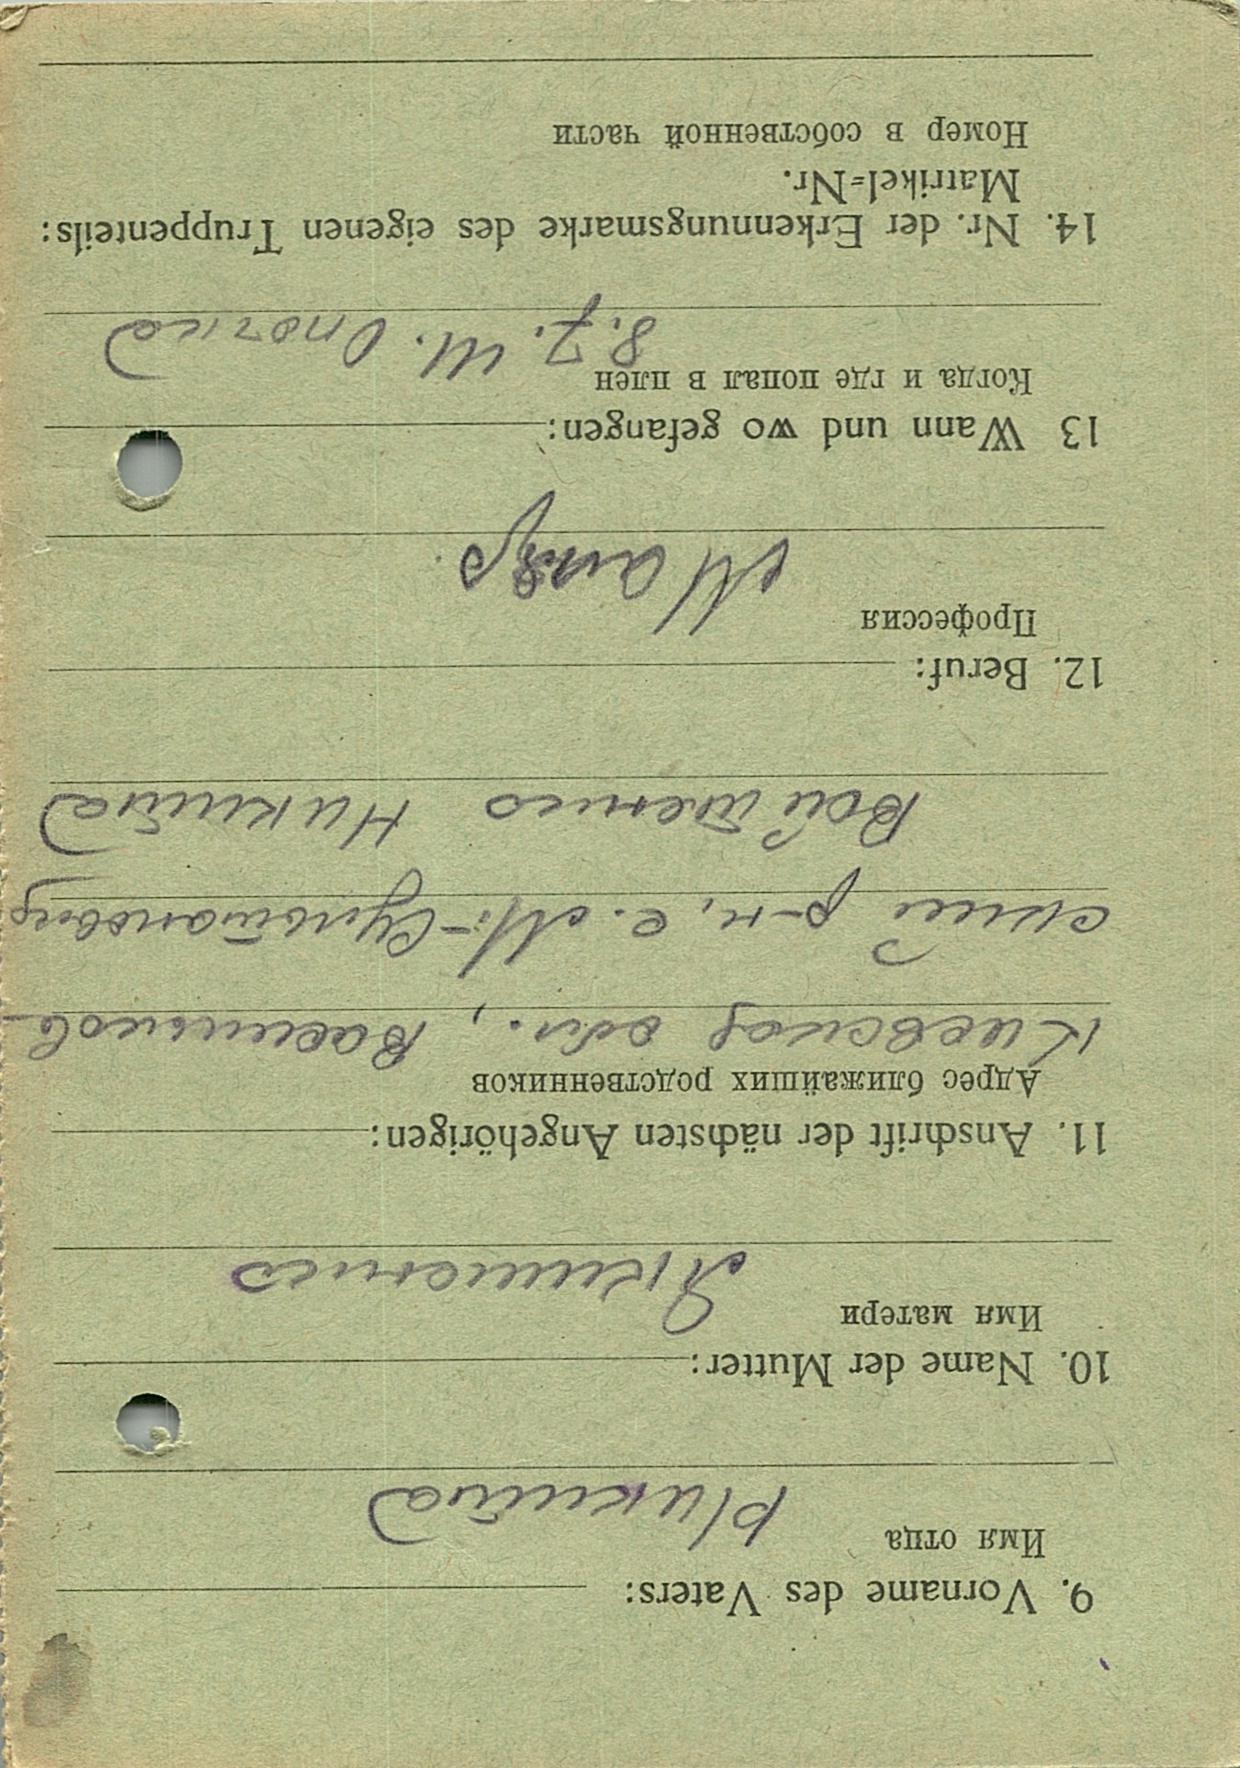 9. Vorname des Vaters:
Имя отца
Никита
10. Name der Mutter:
Имя матери
Якименко
11. Anschrift der nächsten Angehörigen:
Адрес ближайших родственников
Киевская обл., Васильков-
ский р-н, с. М-Султановку
Войтенко Никита
12. Beruf:
Профессия
Маляр
13 Wann und wo gefangen:
Когда и где попал в плен
8.7. Опочка
14. Nr. der Erkennungsmarke des eigenen Truppenteils:
Matrikel=Nr.
Номер в собственной части